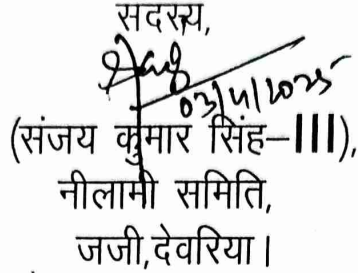 सदस्य,
03/4/2025
(संजय कुमार सिंह–III),
नीलामी समिति,
जजी,देवरिया।